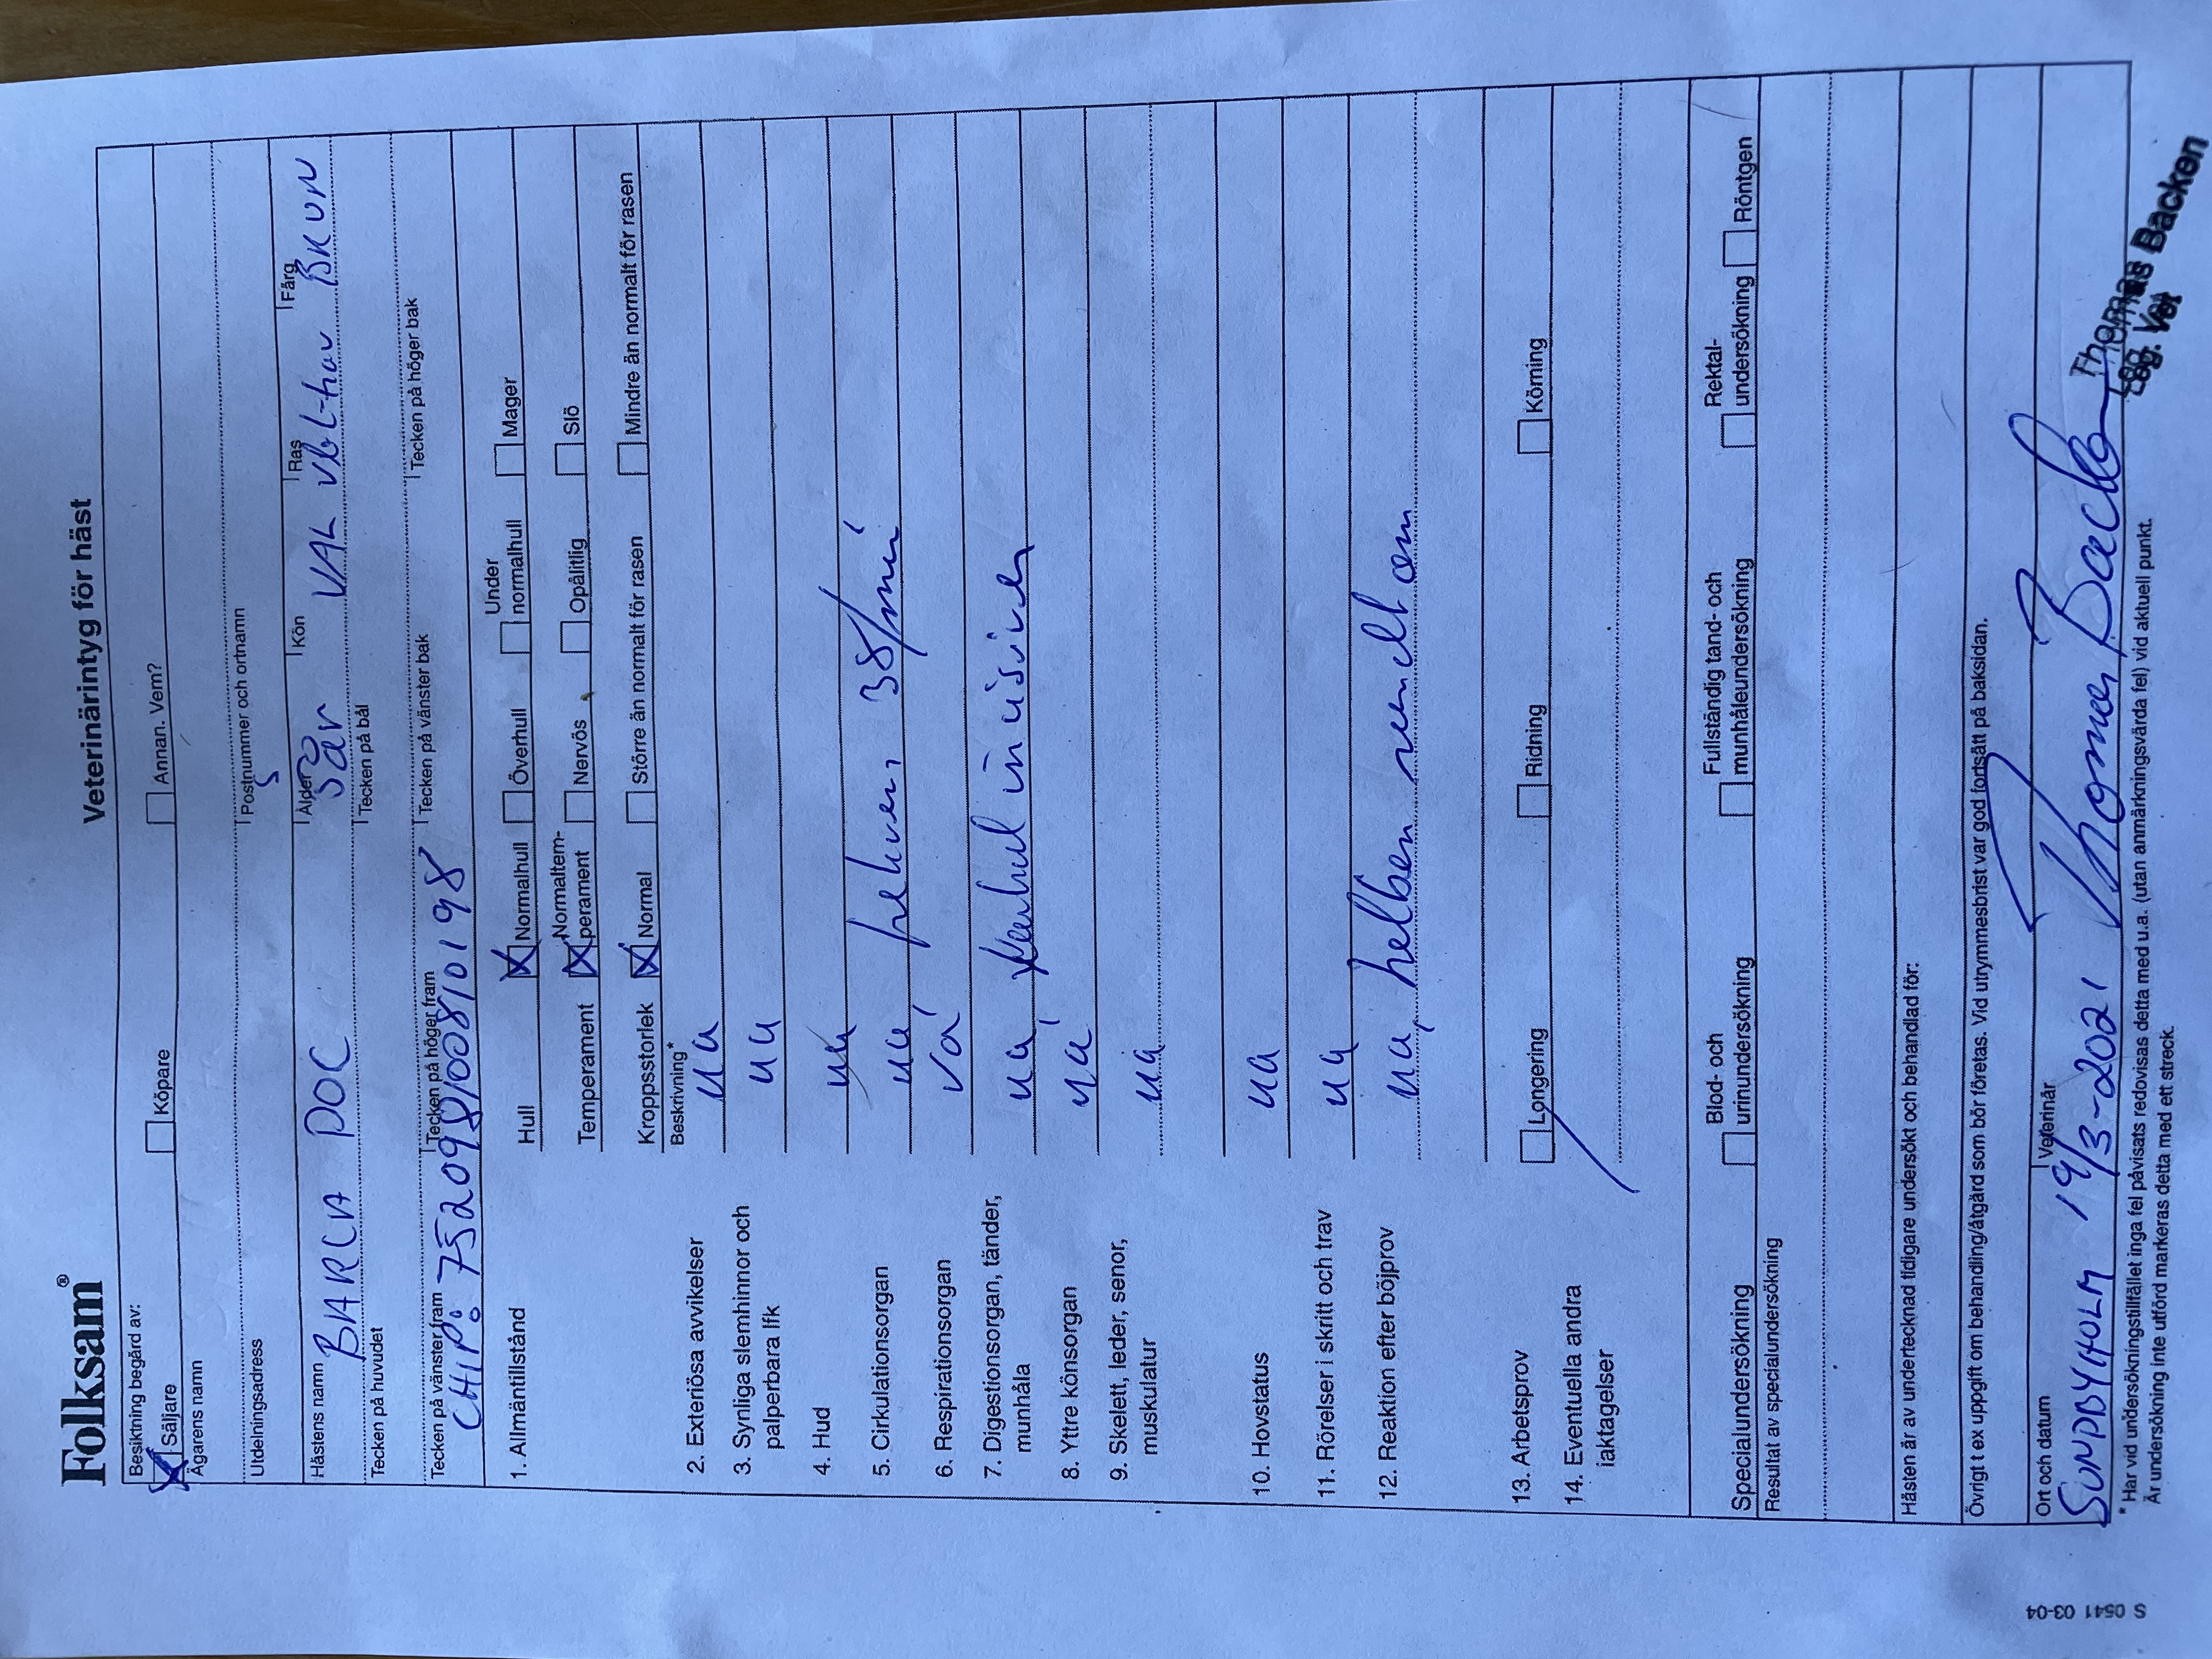 Folksam®
Veterinärintyg för häst
Besiktning begärd av:
Säljare Köpare Annan. Vem?
Ägarens namn
Utdelningsadress Postnummer och ortnamn
Hästens namn Ålder Kön Ras Färg
BARCA DOC 5 år VAL vbl-hav BRUN
Tecken på huvudet Tecken på bål
Tecken på vänster fram Tecken på höger fram Tecken på vänster bak Tecken på höger bak
CHIP: 752098100810198
1. Allmäntillstånd Hull Normalhull Överhull Under normalhull Mager
Temperament Normaltemperament Nervös Opålitlig Slö
Kroppsstorlek Normal Större än normalt för rasen Mindre än normalt för rasen
Beskrivning*
2. Exteriösa avvikelser ua
3. Synliga slemhinnor och ua
palperbara lfk
4. Hud ua
5. Cirkulationsorgan ua, frekvens 38/min
6. Respirationsorgan ua
7. Digestionsorgan, tänder, ua,
munhåla
8. Yttre könsorgan ua
9. Skelett, leder, senor, ua
muskulatur
10. Hovstatus ua
11. Rörelser i skritt och trav ua
12. Reaktion efter böjprov ua, helben runt om
13. Arbetsprov Longering Ridning Körning
14. Eventuella andra
iakttagelser
Specialundersökning Blod- och urinundersökning Fullständig tand- och munhåleundersökning Rektal- undersökning Röntgen
Resultat av specialundersökning
Hästen är av undertecknad tidigare undersökt och behandlad för:
Övrigt t ex uppgift om behandling/åtgärd som bör företas. Vid utrymmesbrist var god fortsätt på baksidan.
Ort och datum Veterinär
SUNDBYHOLM 19/3-2021 Thomas Backen
Thomas Backen
Leg. Vet
* Har vid undersökningstillfället inga fel påvisats redovisas detta med u.a. (utan anmärkningsvärda fel) vid aktuell punkt.
Är undersökning inte utförd markeras detta med ett streck.
S 0541 03-04